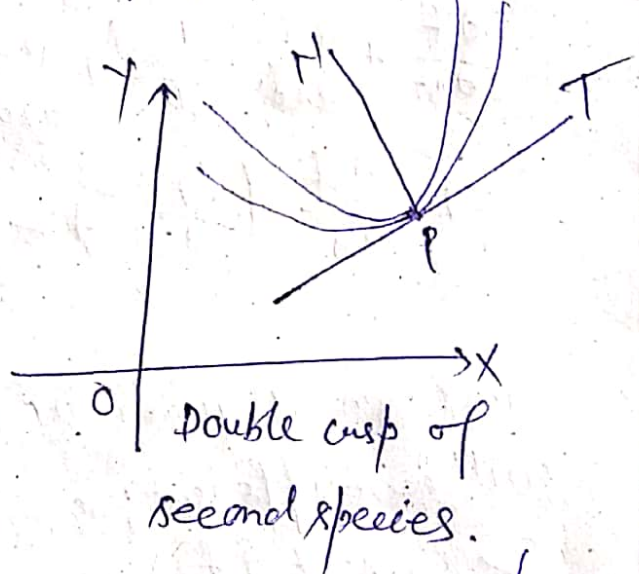 Y
N
T
P
X
O
Double cusp of
second species.